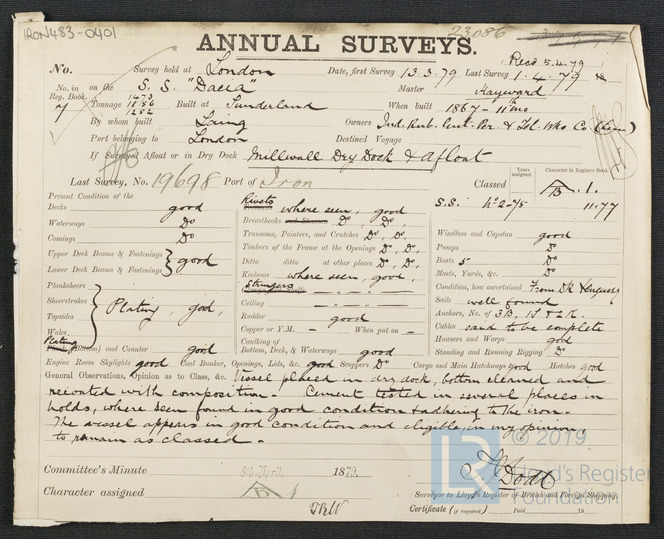 IRON483-0401
23086
ANNUAL SURVEYS.
Recd 5.4.79
No. Survey held at London Date, first Survey 13.3.79 Last Survey 1.4.79
No. in on the S.S. "Dacia Master Hayward
Reg. Book. 1473
7 Tonnage 1856 Built at Sunderland When built 1867 - 11th mo
1282
By whom built Laing Owners Ind. Rub. Gut. Per. & Tel. Wks Co (Lim)
Port belonging to London Destined Voyage
If Surveyed Afloat or in Dry Dock Millwall Dry Dock & Afloat
Years assigned. Character in Register Book
Last Survey, No. 19698 Port of Iron Classed A 1.
S.S. No 2-75 11.77
Present Condition of the
Decks good
Waterways Do
Comings Do
Upper Deck Beams & Fastenings
Lower Deck Beams & Fastenings } good
Planksheers
Sheerstrakes
Topsides
Wales } Plating, good,
Plating (Bottom) and Counter good
Rivets where seen, good
Breasthooks Do, Do,
Transoms, Pointers, and Crutches Do, Do,
Timbers of the Frame at the Openings Do, Do,
Ditta ditta at other places Do, Do,
Keelsons where seen, good,
Stringers
Ceiling
Rudder good
Copper or Y.M. - When put on -
Caulking of
Bottom, Deck, & Waterways good
Windlass and Capstan good
Pumps Do
Boats 5 Do
Masts, Yards, &c. Do
Condition, how ascertained From Dk & Inquiry
Sails well found
Anchors, No. of 3B, 1S & 2K.
Cables said to be complete
Hawsers and Warps good
Standing and Running Rigging Do
Engine Room Skylights good Coal Bunker, Openings, Lids, &c. good Scuppers Do Cargo and Main Hatchways good Hatches good
General Observations, Opinion as to Class, &c. Vessel placed in dry dock, bottom cleaned and
recoated with composition. Cement tested in several places in
holds, where seen found in good condition & adhering to the iron.
The vessel appears in good condition and eligible, in my opinion,
to remain as classed.
Committee's Minute April 1879.
Character assigned A 1
Dodd
Surveyor to Lloyd's Register of British and Foreign Shipping.
Certificate (if required) Paid 18
LR © 2019
Lloyd's Register
Foundation